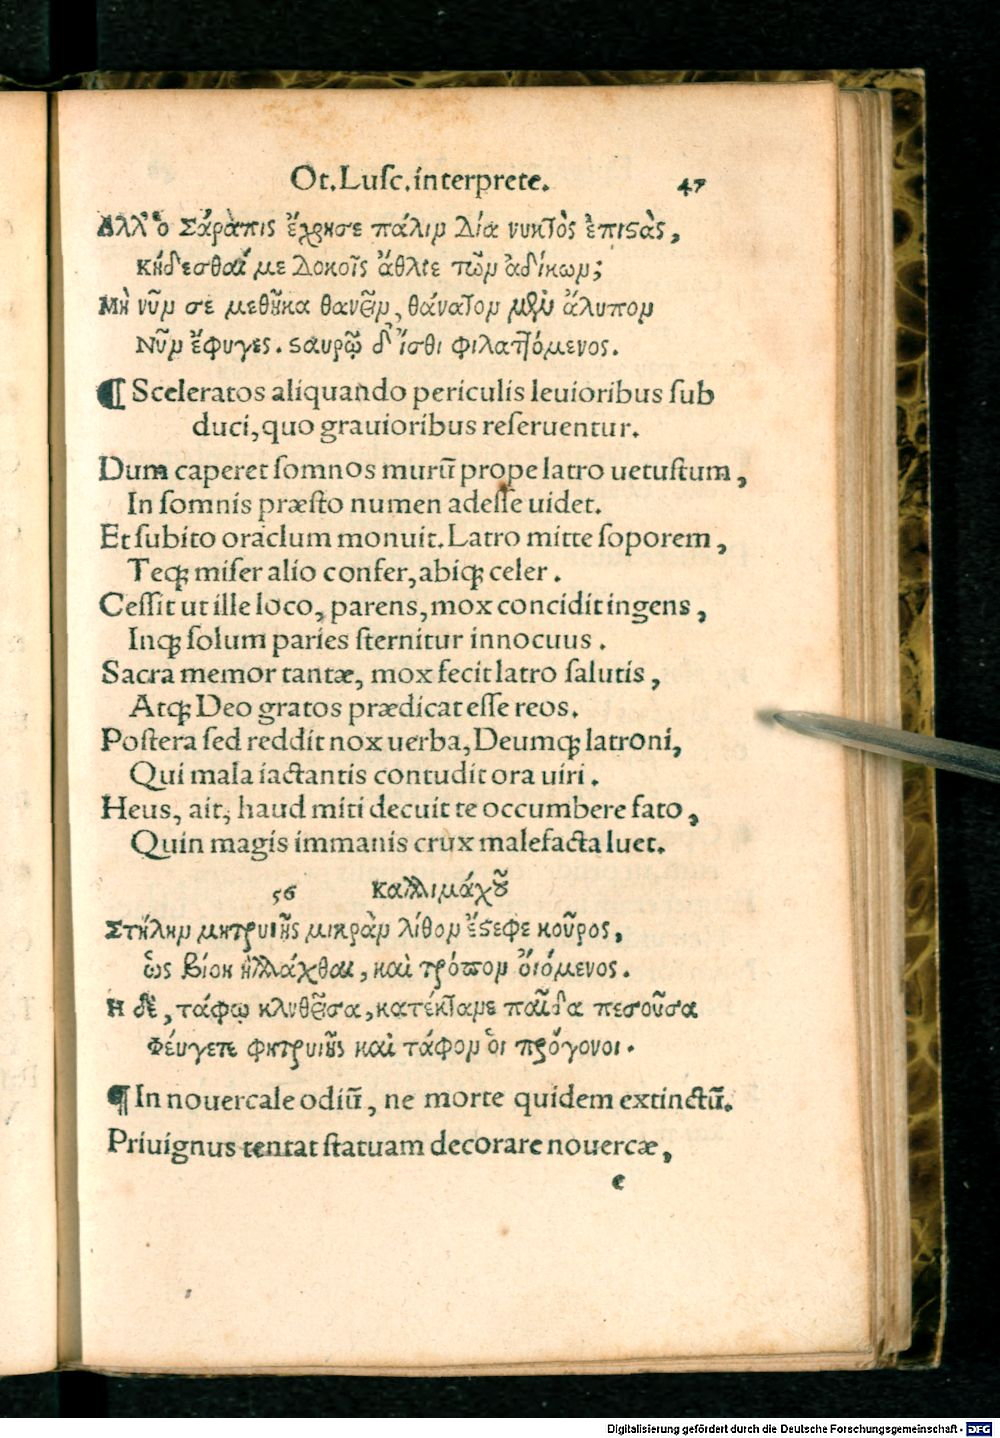 Ot. Lusc. interprete. 47
Αλλ' ὁ Σάραπις ἔχρησε πάλιν Δία νυκτὸς ἐπιστὰς,
κήδεσθαί με δοκοῖς ἄθλιε τῶν ἀδίκων;
Μὴ νῦν σε μεθῆκα θανεῖν, θάνατον μὲν ἄλυπον
Νῦν ἔφυγες. σαυρῷ δ' ἴσθι φιλαττόμενος.
¶ Sceleratos aliquando periculis leuioribus sub
duci, quo grauioribus reseruentur.
Dum caperet somnos murū prope latro uetustum,
In somnis præsto numen adesse uidet.
Et subito oraclum monuit. Latro mitte soporem,
Teq; miser alio confer, abiq; celer.
Cessit ut ille loco, parens, mox concidit ingens,
Inq; solum paries sternitur innocuus.
Sacra memor tantæ, mox fecit latro salutis,
Atq; Deo gratos prædicat esse reos.
Postera sed reddit nox uerba, Deumq; latroni,
Qui mala iactantis contudit ora uiri.
Heus, ait, haud miti decuit te occumbere fato,
Quin magis immanis crux malefacta luet.
56 Καλλιμάχου
Στήλην μητρυιῆς μικρὰν λίθον ἔστεφε κοῦρος,
ὡς βίον ἠλλάχθαι, καὶ τρόπον ὀιόμενος.
Η δὲ, τάφῳ κλιθεῖσα, κατέκτανε παῖδα πεσοῦσα
Φέυγετε φητρυιῆς καὶ τάφον ὁι πρόγονοι.
¶ In nouercale odiū, ne morte quidem extinctū.
Priuignus tentat statuam decorare nouercæ,
e
Digitalisierung gefördert durch die Deutsche Forschungsgemeinschaft - DFG